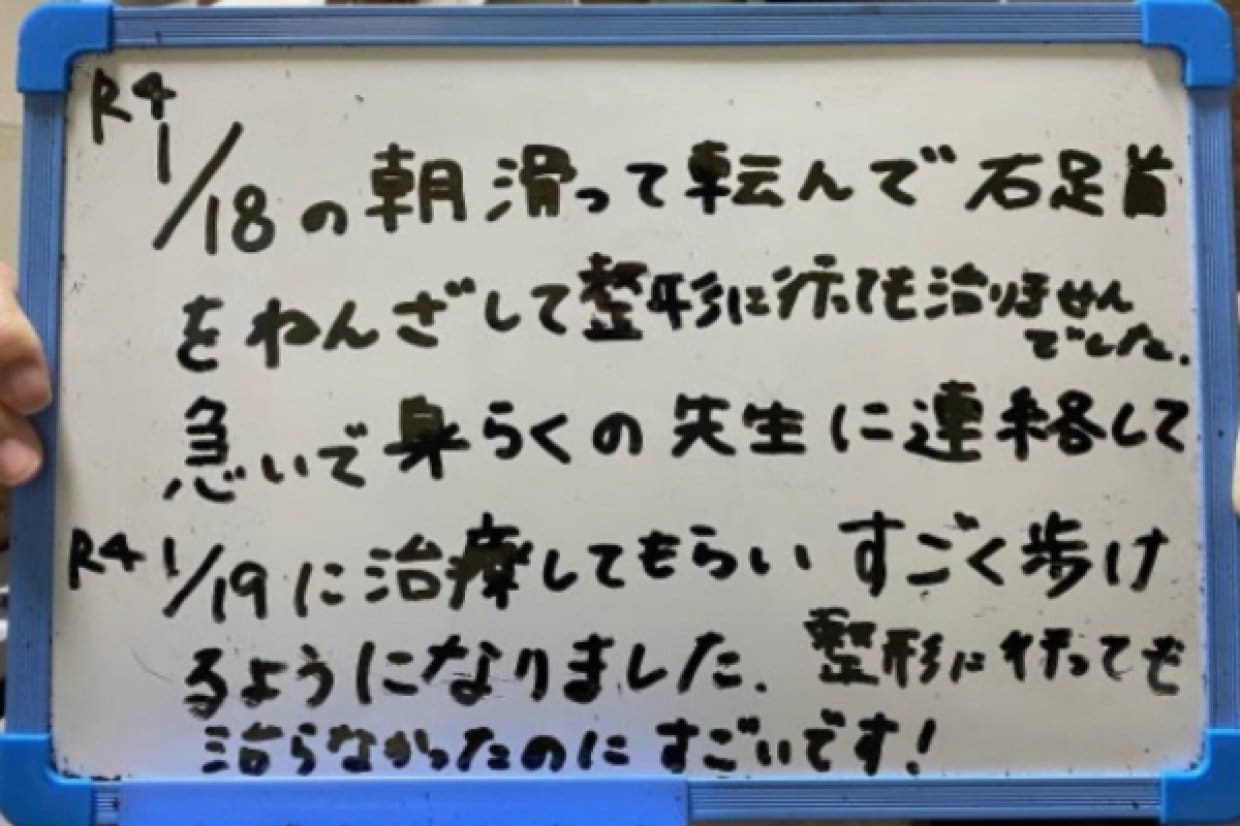 R4 1/18の朝滑って転んで右足首
をねんざして整形に行っても治りません
でした.
急いで身らくの先生に連絡して
R4 1/19に治療してもらいすごく歩け
るようになりました. 整形に行っても
治らなかったのにすごいです!